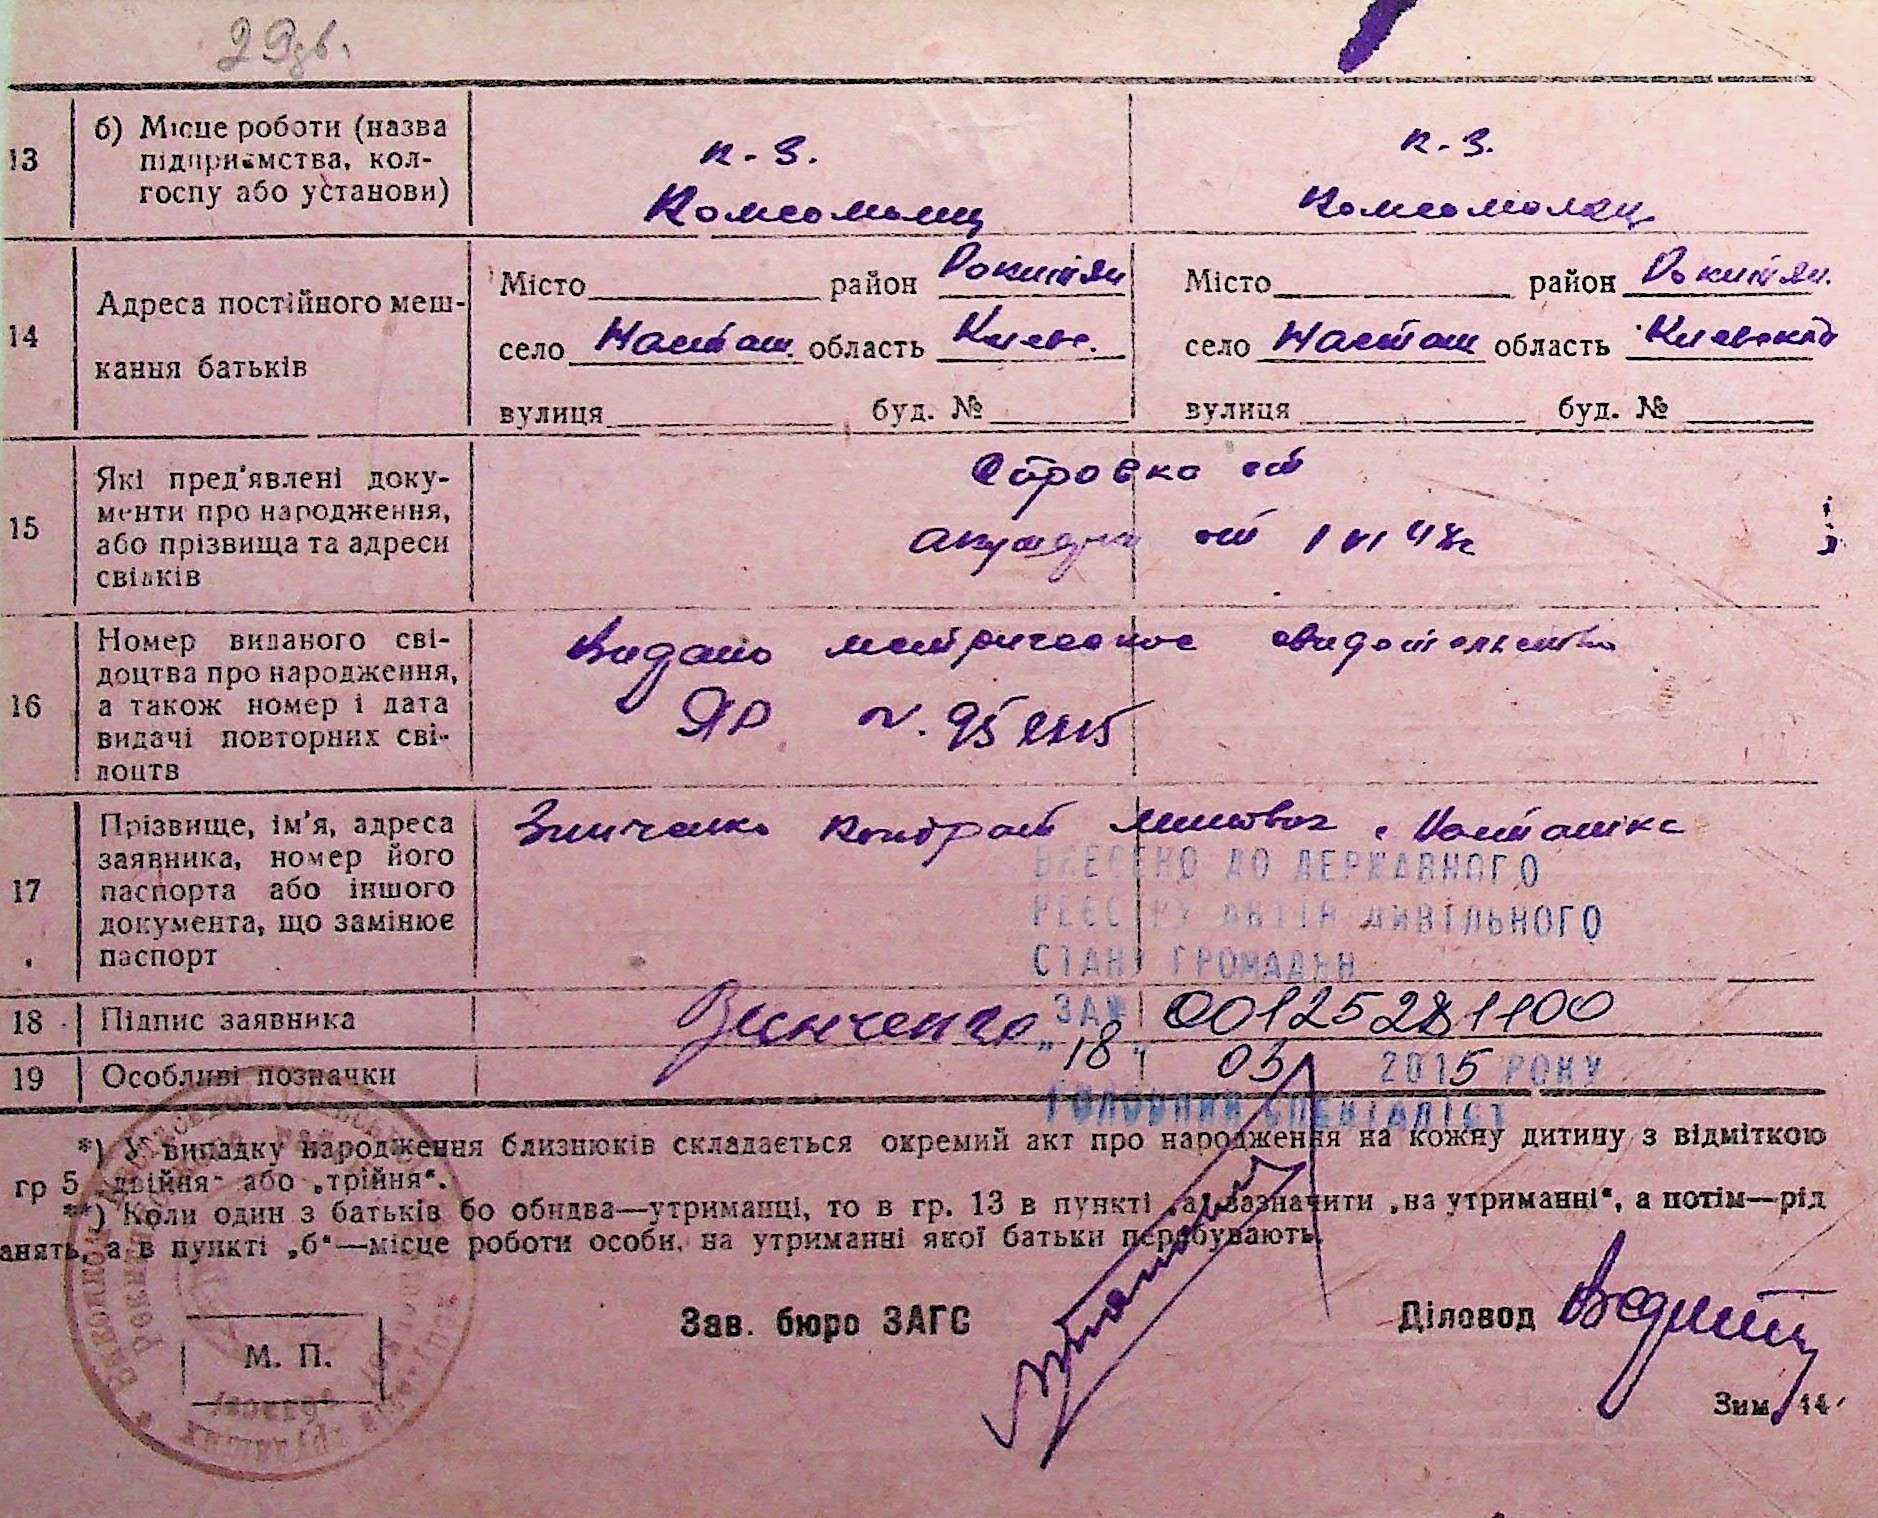 29зв.
13
б) Місце роботи (назва
підприємства, кол-
госпу або установи)
к-з.
Комсомолец
к-з.
Комсомолец
14
Адреса постійного меш-
кання батьків
Місто район Рокитян
село Насташ. область Киевс.
вулиця буд. №
Місто район Рокитян.
село Насташ область Киевской
вулиця буд. №
15
Які пред'явлені доку-
менти про народження,
або прізвища та адреси
свідків
Справка от
акушерки от 1 VI 48г
16
Номер виданого сві-
доцтва про народження,
а також номер і дата
видачі повторних сві-
доцтв
Видано метрическое свидетельство
ЯР №.
17
Прізвище, ім'я, адреса
заявника, номер його
паспорта або іншого
документа, що замінює
паспорт
Зинченко Кондрат с. Насташка
ВНЕСЕНО ДО ДЕРЖАВНОГО
РЕЄСТРУ АКТІВ ЦИВІЛЬНОГО
СТАНУ ГРОМАДЯН
ЗА № 00125281100
"18" 03 2015 РОКУ
ГОЛОВНИЙ СПЕЦІАЛІСТ
18
Підпис заявника
Зинченко
19
Особливі позначки
*) У випадку народження близнюків складається окремий акт про народження на кожну дитину з відміткою
гр 5 „двійня“ або „трійня“.
**) Коли один з батьків бо обидва—утриманці, то в гр. 13 в пункті „а“ зазначити „на утриманні“, а потім—рід
анять, а в пункті „б“—місце роботи особи, на утриманні якої батьки перебувають.
М. П.
Зав. бюро ЗАГС
Діловод
Зим. 44